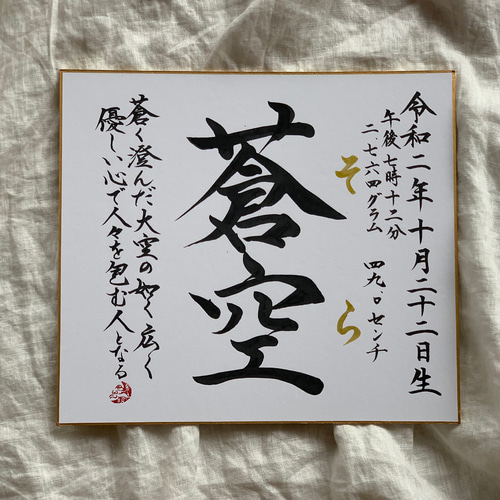 令和二年十月二十二日生
午後七時十二分
二、七六四グラム 四九.〇センチ
そら
蒼空
蒼く澄んだ大空の如く広く
優しい心で人々を包む人となる